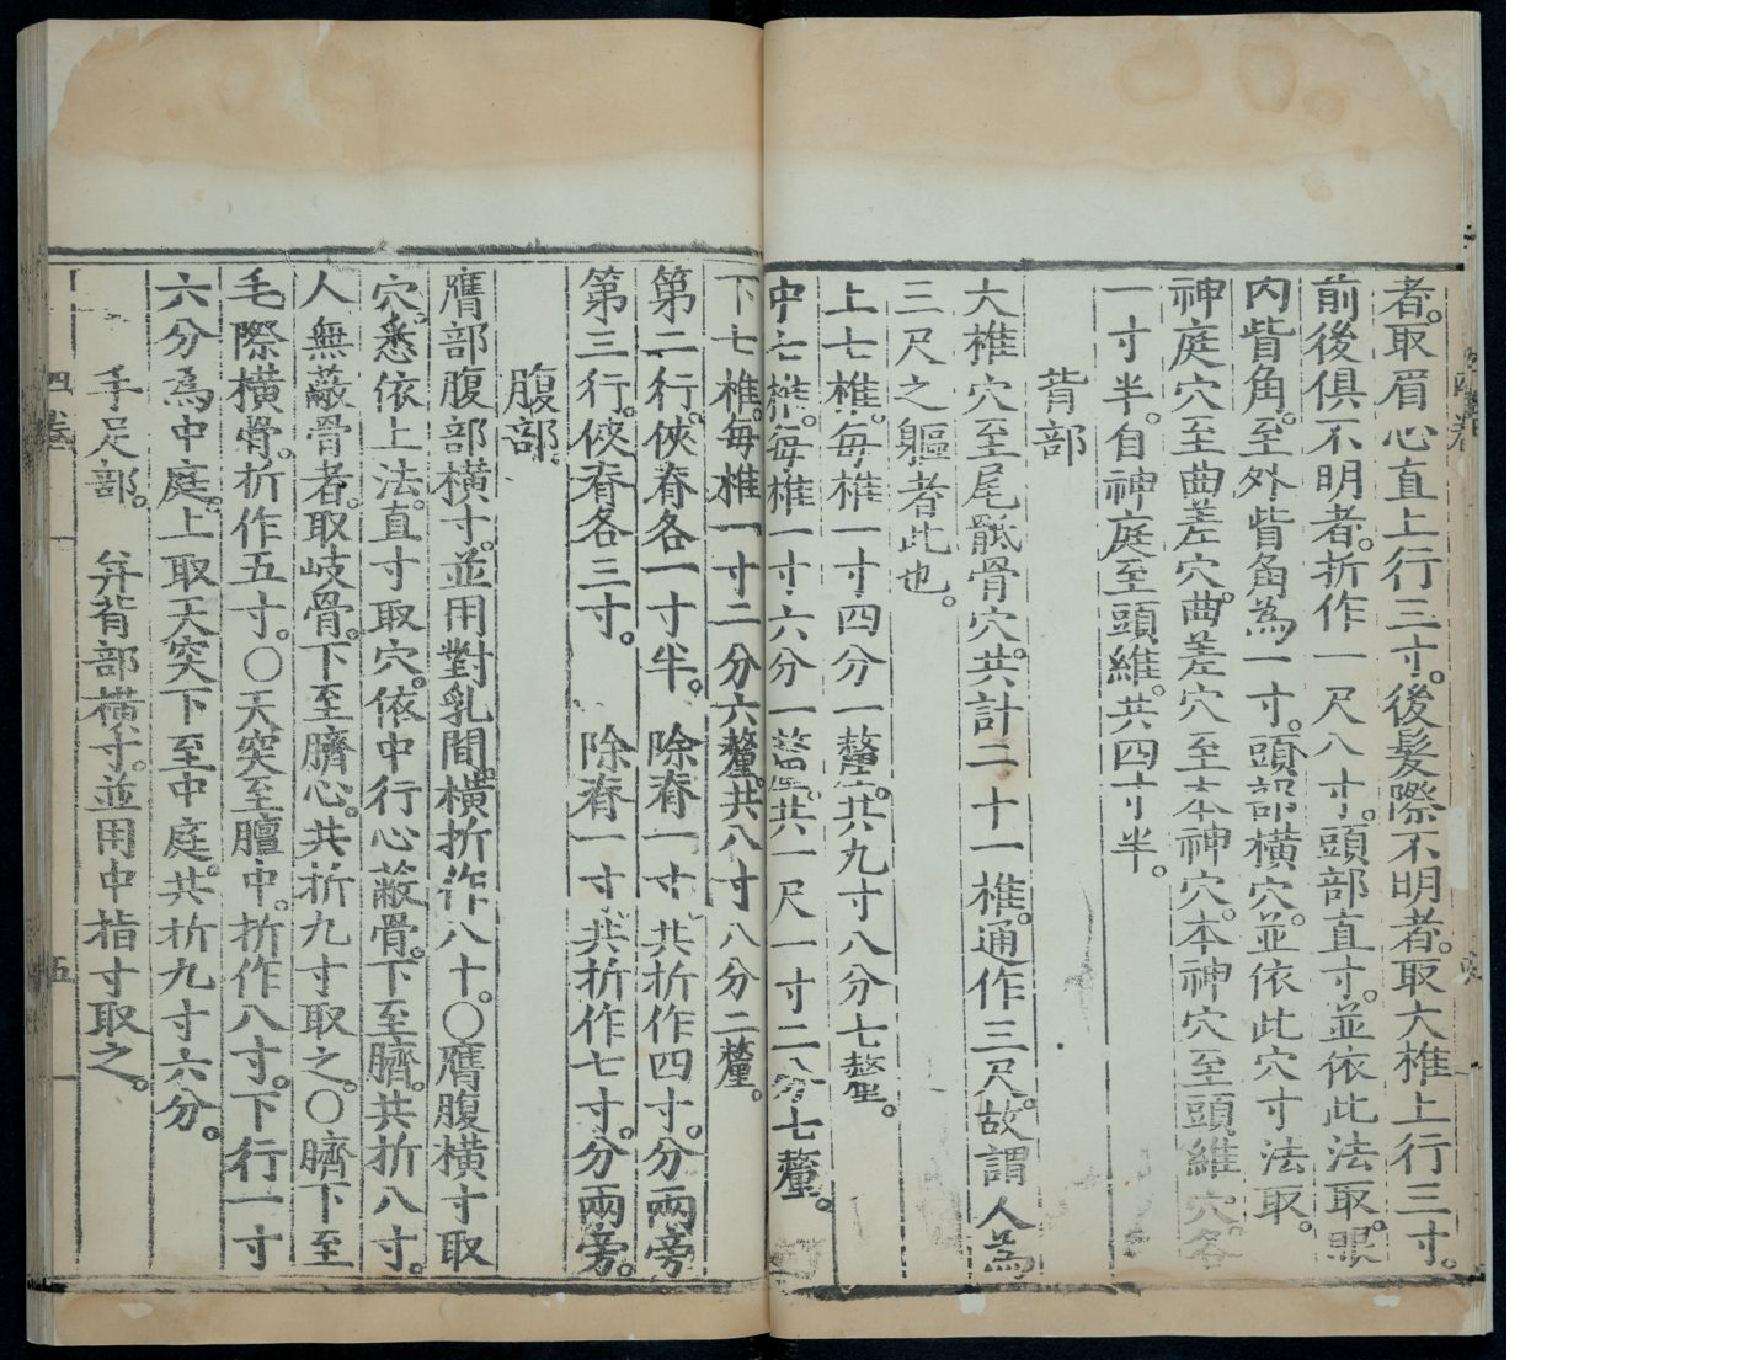 者。取眉心直上行三寸。後髮際不明者。取大椎上行三寸。
前後俱不明者。折作一尺八寸。頭部直寸。並依此法取。眼
內眥角。至外眥角為一寸。頭部橫穴。並依此穴寸法取。
神庭穴至曲差穴。曲差穴至本神穴。本神穴至頭維穴。各
一寸半。自神庭至頭維。共四寸半。
背部
大椎穴至尾骶骨穴。共計二十一椎。通作三尺。故謂人為
三尺之軀者此也。
上七椎。每椎一寸四分一釐。共九寸八分七釐。
中七椎。每椎一寸六分一釐。共一尺一寸二分七釐。
下七椎。每椎一寸二分六釐。共八寸八分二釐。
第二行。俠脊各一寸半。除脊一寸。共折作四寸。分兩旁
第三行。俠脊各三寸。除脊一寸。共折作七寸。分兩旁。
腹部。
膺部腹部橫寸。並用對乳間。橫折作八寸。○膺腹橫寸取
穴。悉依上法。直寸取穴。依中行心蔽骨。下至臍。共折八寸。
人無蔽骨者。取岐骨。下至臍心。共折九寸取之。○臍下至
毛際橫骨。折作五寸。○天突至膻中。折作八寸。下行一寸
六分為中庭。上取天突下至中庭。共折九寸六分。
手足部。 并背部橫寸。並用中指寸取之。
四卷 五